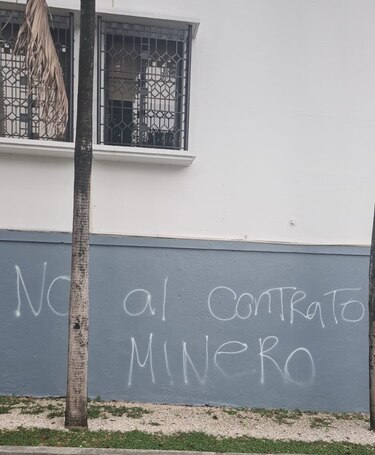 NO al CONTRATO
MINERO